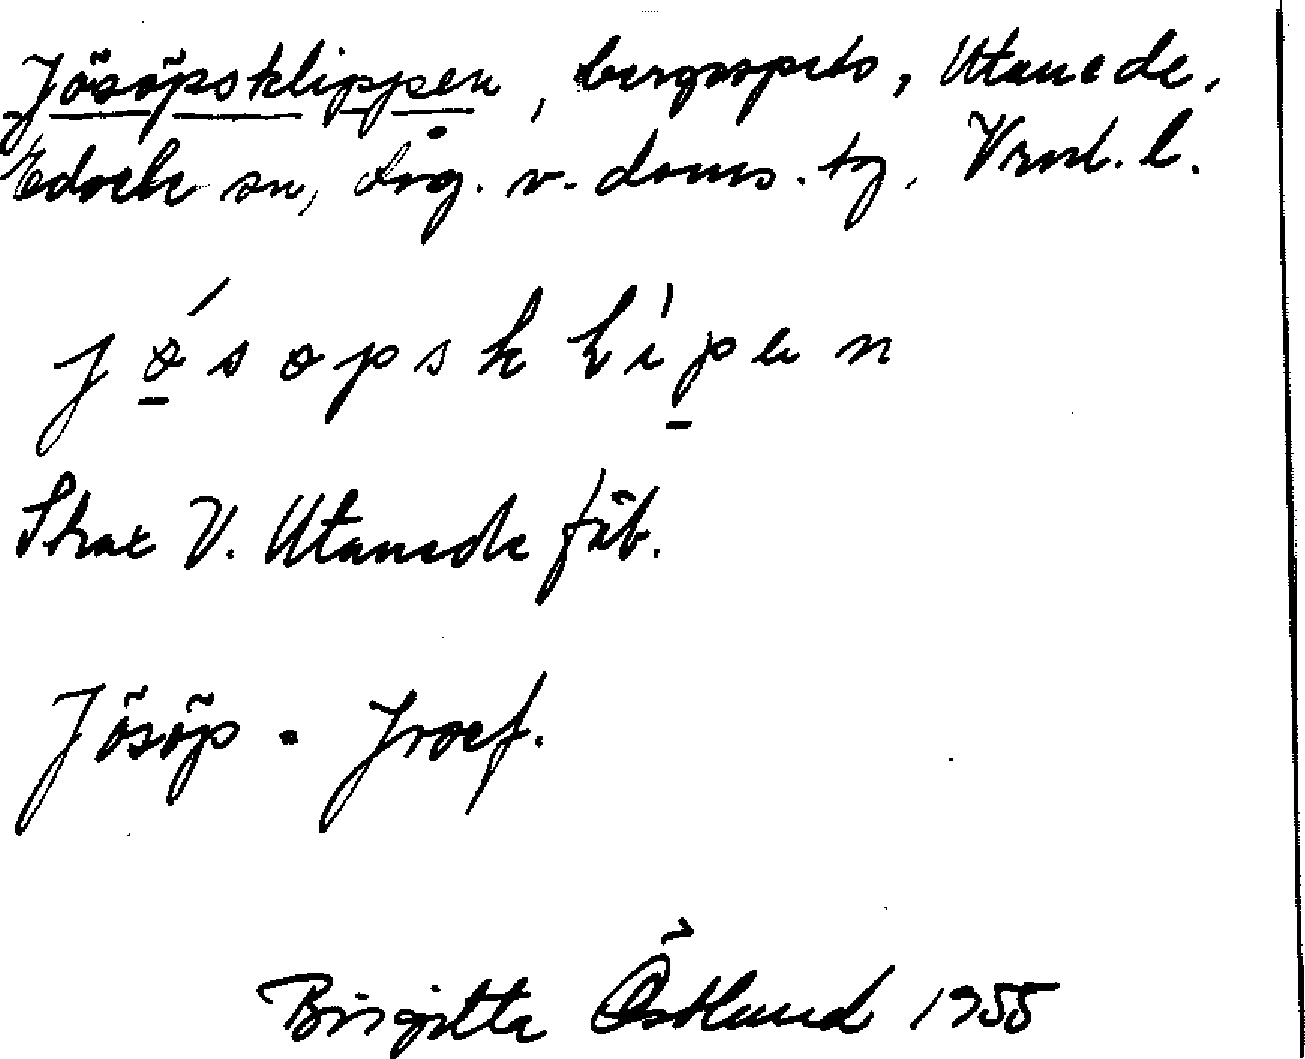 Jösöpsklippen, bergspets, Utanede,
Edsele sn, Ång. v. doms. tg, Vrnl. l.
jøsøpsklipen
Strax V. Utanede fäb.
Jösöp = Josef.
Birgitta Östlund 1955